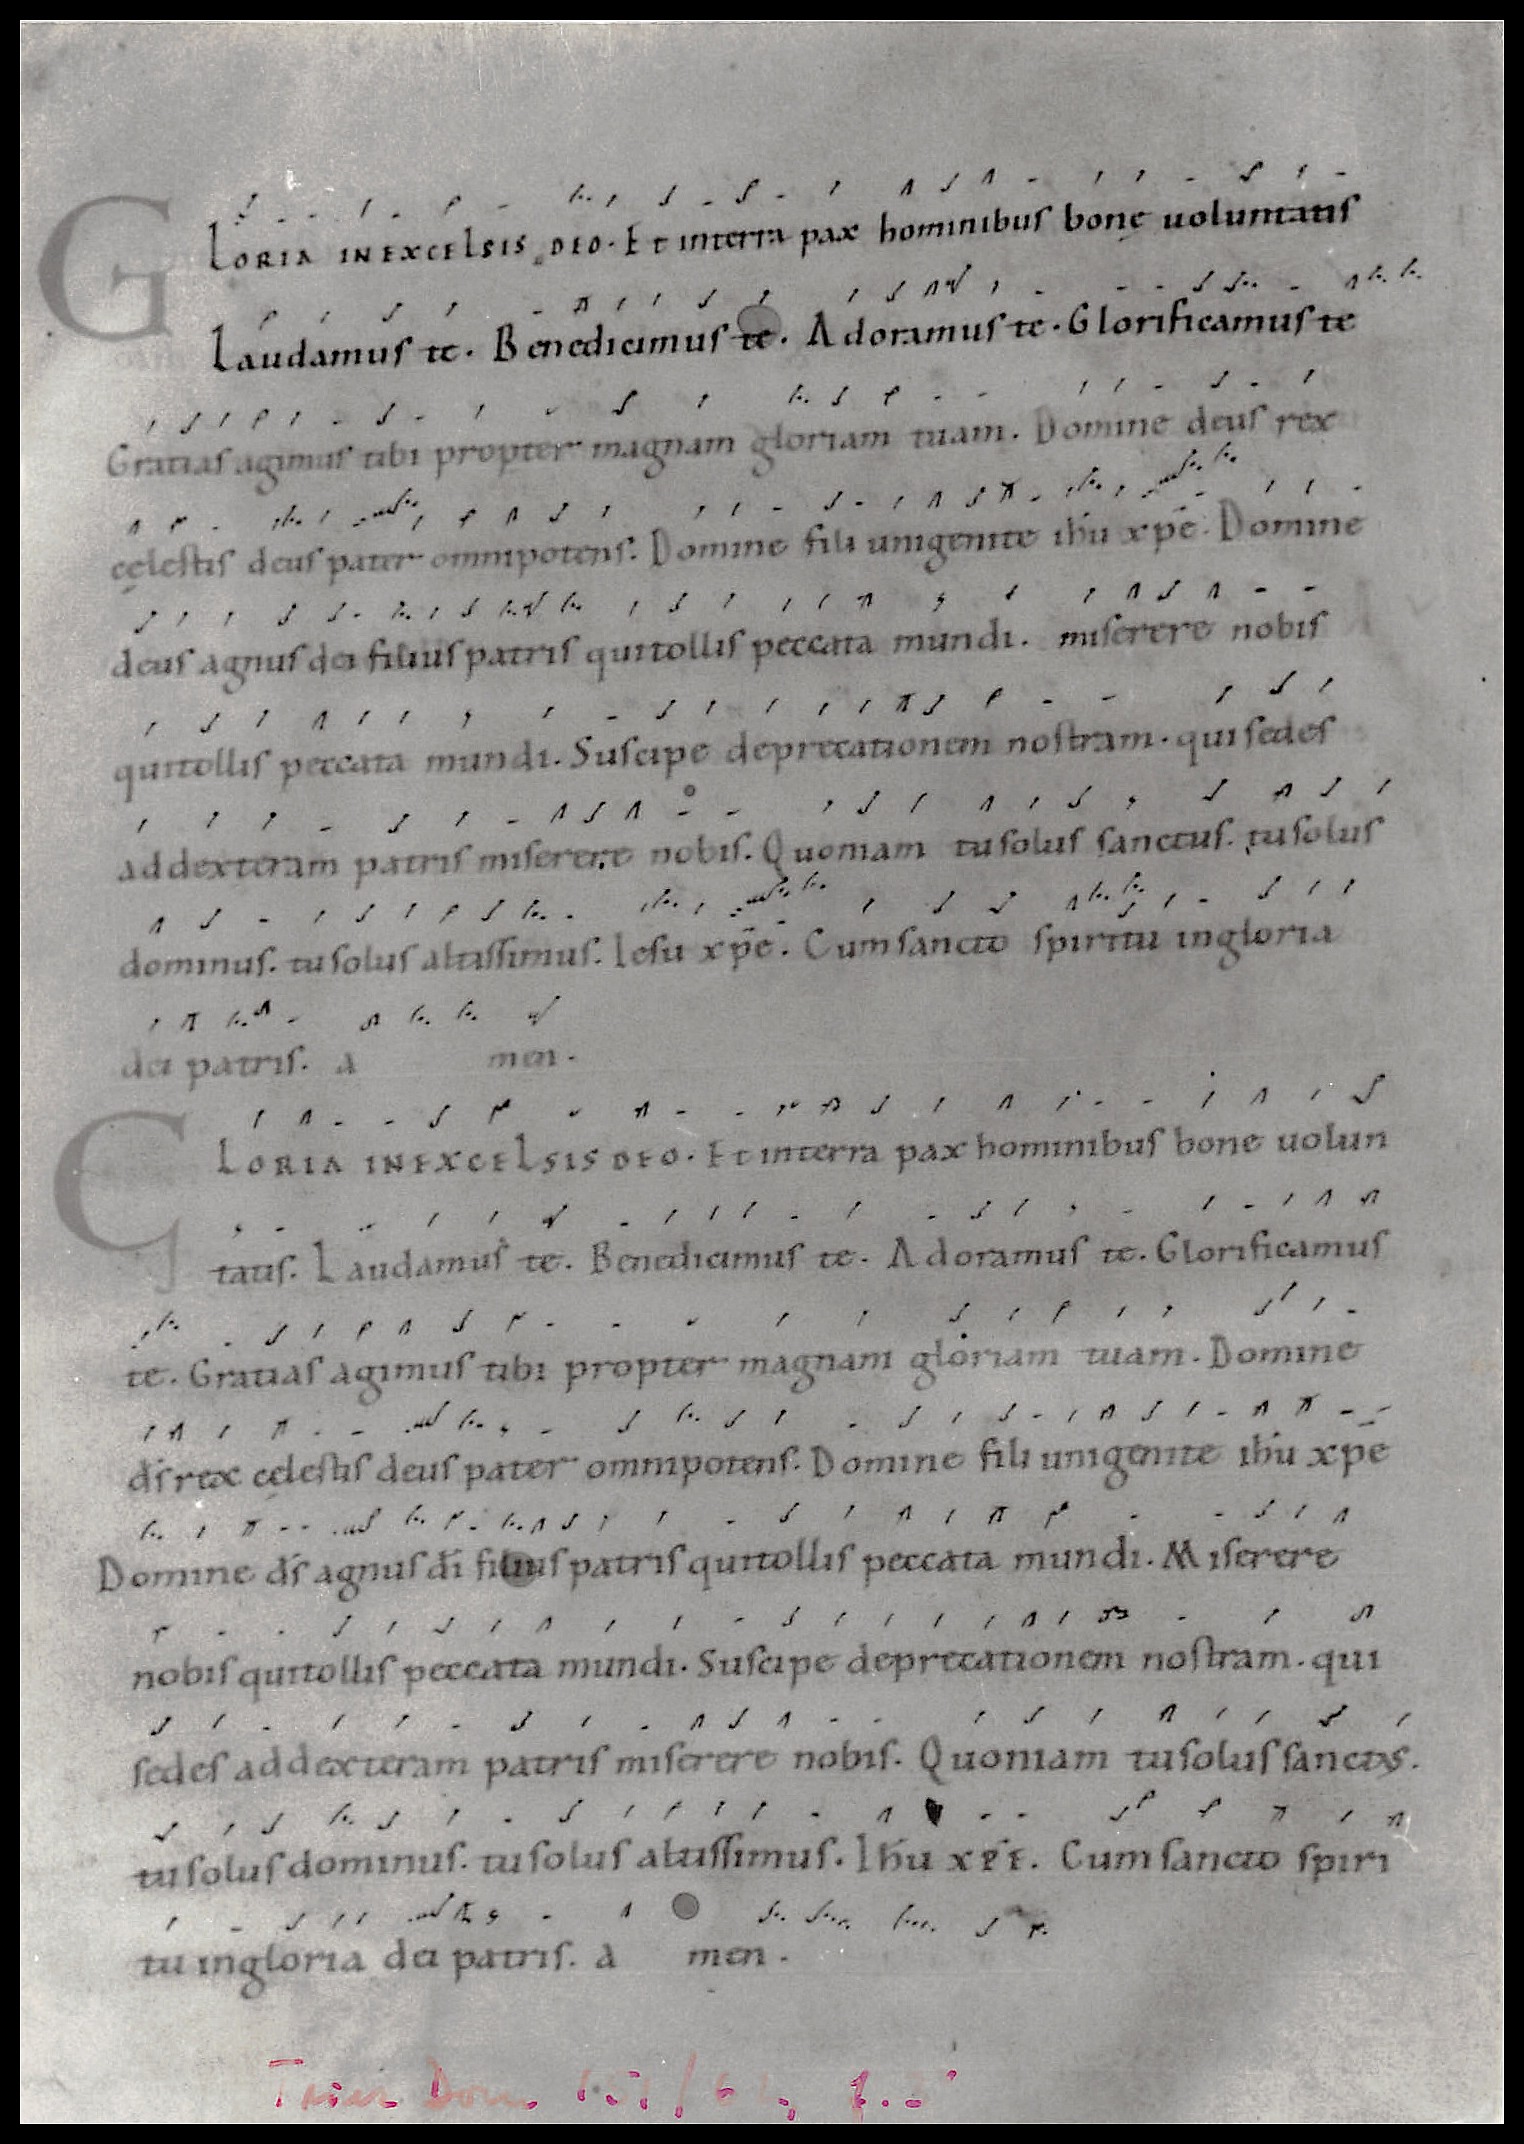 GLORIA IN EXCELSIS DEO. Et in terra pax hominibus bonę uoluntatis
Laudamus te. Benedicimus te. Adoramus te. Glorificamus te
Gratias agimus tibi propter magnam gloriam tuam. Domine deus rex
cęlestis deus pater omnipotens. Domine fili unigenite ihu xpe. Domine
deus agnus dei filius patris qui tollis peccata mundi. miserere nobis
qui tollis peccata mundi. Suscipe deprecationem nostram. qui sedes
ad dexteram patris miserere nobis. Quoniam tu solus sanctus. tu solus
dominus. tu solus altissimus. Iesu xpe. Cum sancto spiritu in gloria
dei patris. a men.
GLORIA IN EXCELSIS DEO. Et in terra pax hominibus bone uolun
tatis. Laudamus te. Benedicimus te. Adoramus te. Glorificamus
te. Gratias agimus tibi propter magnam gloriam tuam. Domine
ds rex cęlestis deus pater omnipotens. Domine fili unigenite ihu xpe
Domine ds agnus di filius patris qui tollis peccata mundi. Miserere
nobis qui tollis peccata mundi. Suscipe deprecationem nostram. qui
sedes ad dexteram patris miserere nobis. Quoniam tu solus sanctus.
tu solus dominus. tu solus altissimus. Ihu xpe. Cum sancto spiri
tu in gloria dei patris. a men.